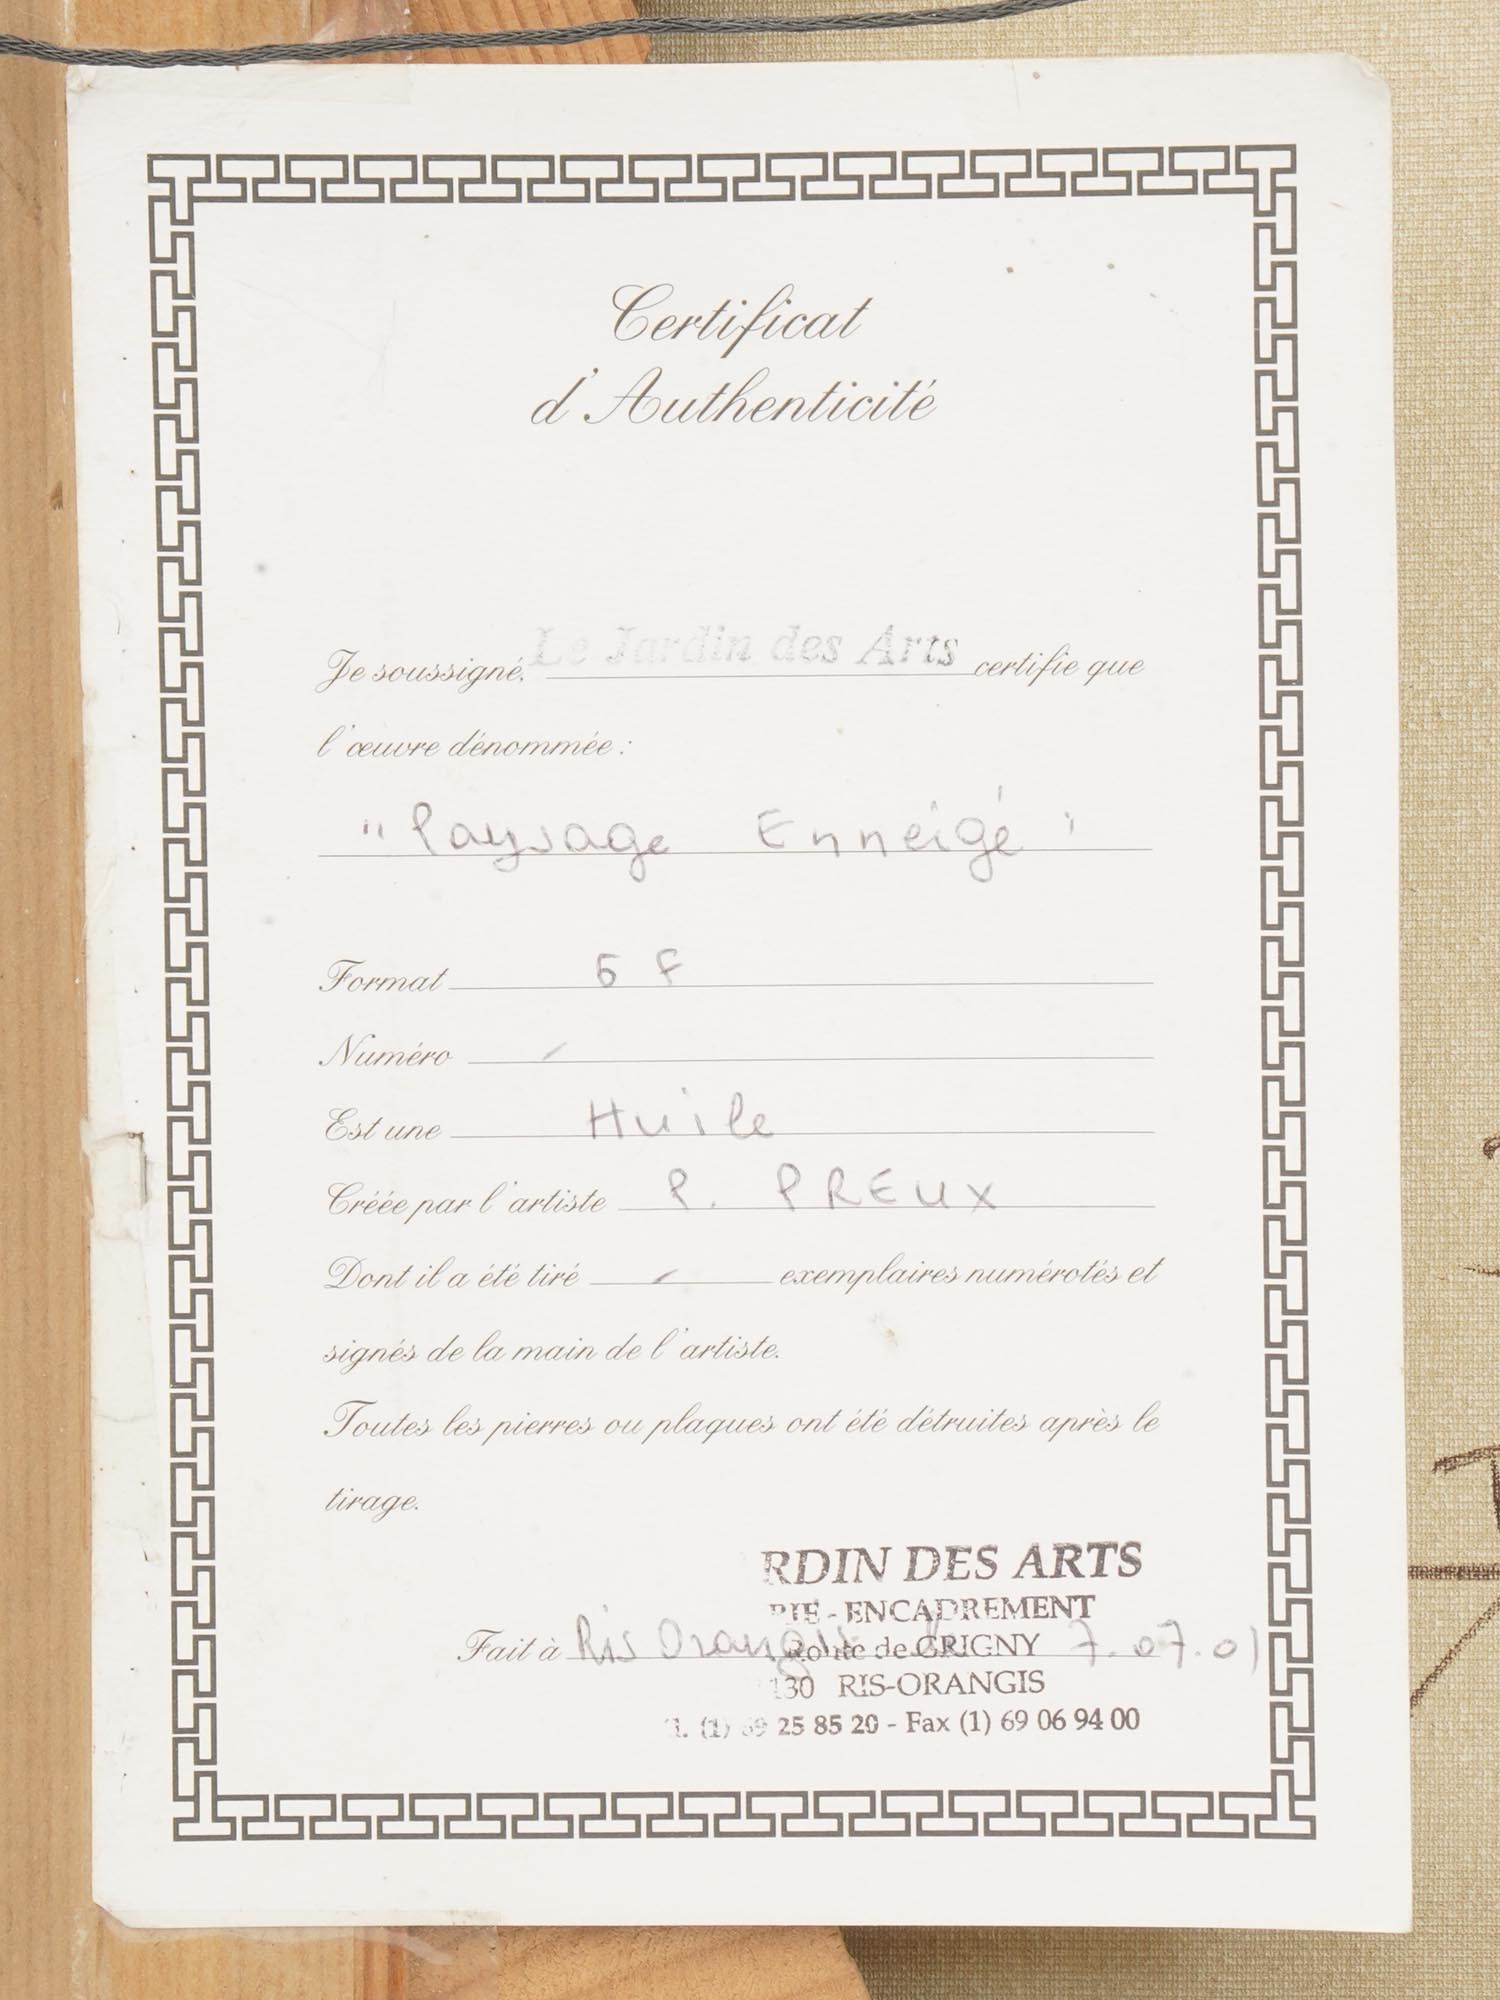 Certificat
d'Authenticité
Je soussigné, Le Jardin des Arts certifie que
l'œuvre dénommée :
"Paysage Enneigé"
Format 5 F
Numéro /
Est une Huile
Créée par l'artiste P. PREUX
Dont il a été tiré / exemplaires numérotés et
signés de la main de l'artiste.
Toutes les pierres ou plaques ont été détruites après le
tirage.
RDIN DES ARTS
RIE - ENCADREMENT
Fait à Ris Orangis le 7.07.01
Route de GRIGNY
130 RIS-ORANGIS
l. (1) 69 25 85 20 - Fax (1) 69 06 94 00